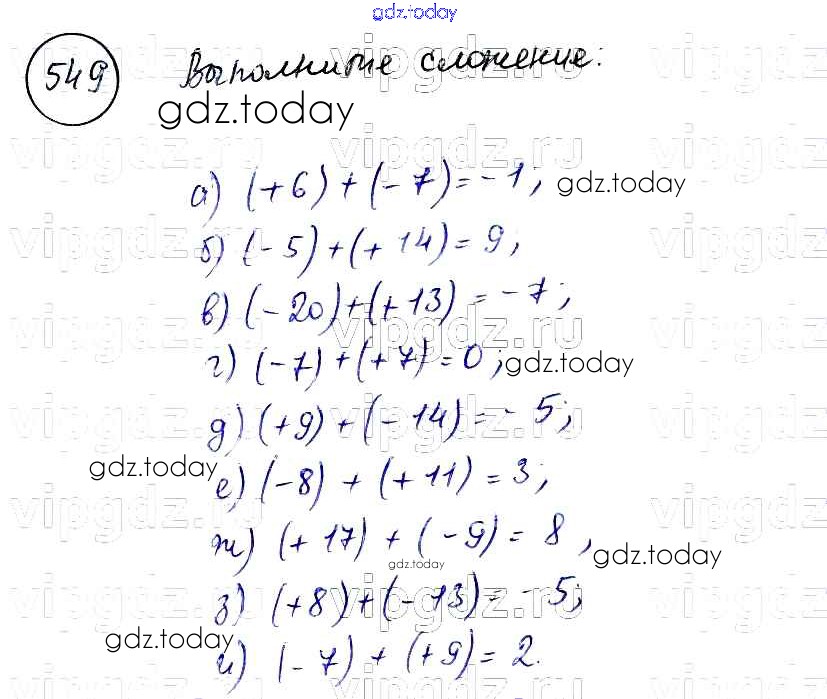 gdz.today
549 Выполните сложение:
gdz.today
а) (+6)+(-7)=-1; gdz.today
б) (-5)+(+14)=9;
в) (-20)+(+13)=-7;
г) (-7)+(+7)=0; gdz.today
д) (+9)+(-14)=-5;
gdz.today
е) (-8)+(+11)=3;
ж) (+17)+(-9)=8, gdz.today
gdz.today
з) (+8)+(-13)=-5;
gdz.today
и) (-7)+(+9)=2.
vipgdz.ru
vipgdz.ru
vipgdz.ru
vipgdz.ru
vipgdz.ru
vipgdz.ru